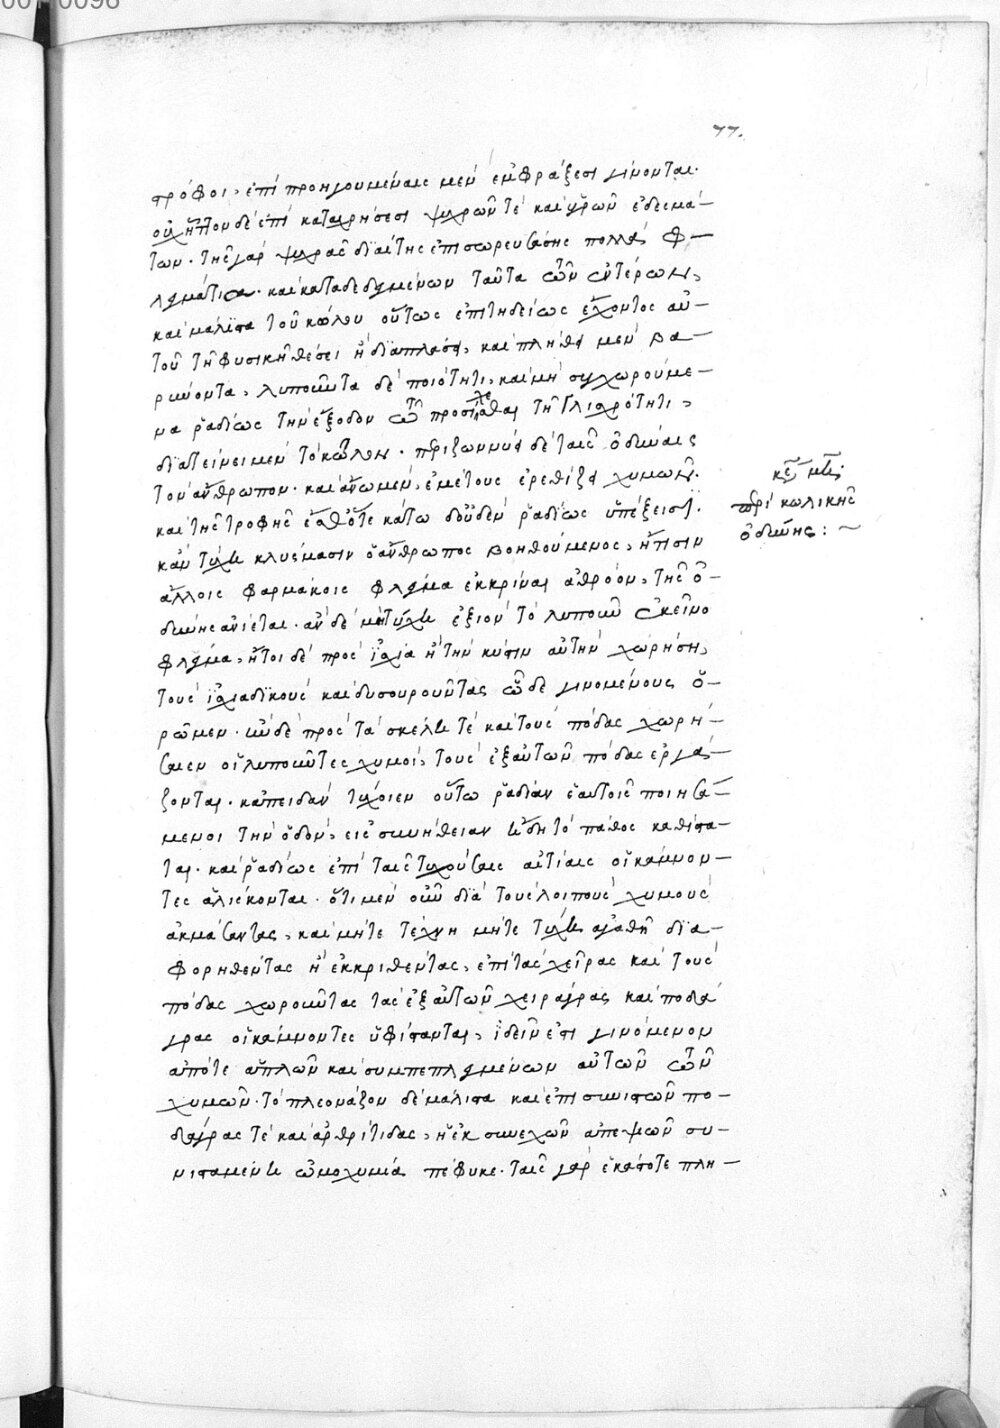 77.
τρόφοι, ἐπὶ προηγουμέναις μὲν ἐμφράξεσι γίνονται.
οὐχ ἧττον δὲ ἐπὶ καταχρήσεσι ψυχρῶν τὲ καὶ ὑγρῶν ἐδεσμά-
των. τῆς γὰρ ψυχρᾶς διαίτης ἐπισωρευσάσης πολλὰ φ-
λέγματα. καὶ καταδεδεγμένων ταῦτα τῶν ἐντέρων,
καὶ μάλιστα τοῦ κώλου οὕτως ἐπιτηδείως ἔχοντος αὐ-
τοῦ τῇ φυσικῇ θέσει ἢ διαπλάσει, καὶ πλήθει μὲν βα-
ρύνοντα, λυποῦντα δὲ ποιότητι, καὶ μὴ συγχωρούμε-
να ῥαδίως τὴν ἔξοδον τῇ γλισχρότητι,
διατείνει μὲν τὸ κῶλον. περιζωννύει δὲ ταῖς ὀδύναις
τὸν ἄνθρωπον. καὶ ἄνω μὲν, ἐμέτους ἐρεθίζει χυμῶν.
καὶ τῆς τροφῆς ἔσθ' ὅτε κάτω δ' οὐδὲν ῥαδίως ὑπέξεισι.
κἂν τύχῃ κλυέμασιν ὁ ἄνθρωπος βοηθούμενος, ἤ τισιν
ἄλλοις φαρμάκοις φλέγμα ἐκκρίναι ἀθρόον, τῆς ὀ-
δύνης ἀνίεται. ἂν δὲ μὴ τύχῃ ἐξιὸν τὸ λυποῦν ἐκεῖνο
φλέγμα, ἤτοι δὲ πρὸς ἰσχία ἢ τὴν κύστιν αὐτὴν χωρήσῃ,
τοὺς ἰσχιαδικοὺς καὶ δυσουροῦντας ὧδε γινομένους ὁ-
ρῶμεν. εἰ δὲ πρὸς τὰ σκέλη τὲ καὶ τοὺς πόδας χωρή-
σαιεν οἱ λυποῦντες χυμοὶ, τοὺς ἐξ αὐτῶν πόδας ἐργά-
ζονται. κἀπειδὰν τύχοιεν οὕτω ῥαδίαν ἑαυτοῖς ποιησά-
μενοι τὴν ὁδὸν, εἰς συνήθειαν ἤδη τὸ πάθος καθίστα-
ται. καὶ ῥαδίως ἐπὶ ταῖς τυχούσαις αἰτίαις οἱ κάμνον-
τες ἁλίσκονται. ὅτι μὲν οὖν διὰ τοὺς λοιποὺς χυμοὺς
ἀκμάσαντας, καὶ μήτε τέχνῃ μήτε τύχῃ ἀγαθῇ δια-
φορηθέντας ἢ ἐκκριθέντας, ἐπὶ τὰς χεῖρας καὶ τοὺς
πόδας χωροῦντας τὰς ἐξ αὐτῶν χειράγρας καὶ ποδά-
γρας οἱ κάμνοντες ὑφίστανται, ἰδεῖν ἔστι γινόμενον
ἀπό τε ἁπλῶν καὶ συμπεπλεγμένων αὐτῶν τῶν
χυμῶν. τὸ πλεονάζον δὲ μάλιστα καὶ ἐπισυνιστῶν πο-
δάγρας τὲ καὶ ἀρθρίτιδας, ἡ ἐκ συνεχῶν ἀπεψιῶν συ-
νισταμένη ὠμοχυμία πέφυκε. ταῖς γὰρ ἑκάστοτε πλη-
περὶ κωλικῆς
ὀδύνης: ~